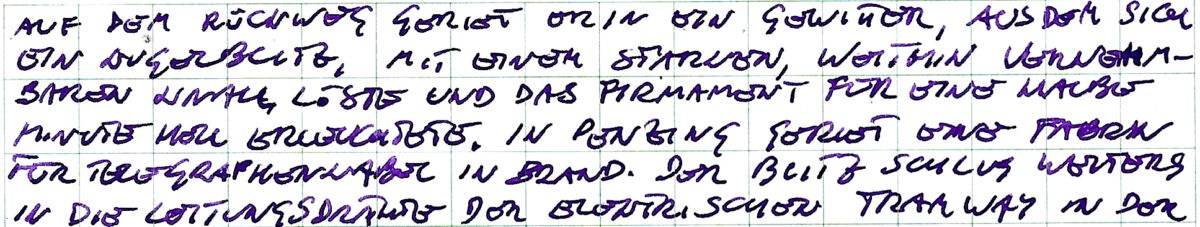 AUF DEM RÜCKWEG GERIET ER IN EIN GEWITTER, AUS DEM SICH
EIN KUGELBLITZ, MIT EINEM STARKEN, WEITHIN VERNEHM-
BAREN KNALL, LÖSTE UND DAS FIRMAMENT FÜR EINE HALBE
MINUTE HELL ERLEUCHTETE. IN PENZING GERIET EINE FABRIK
FÜR TELEGRAPHENKABEL IN BRAND. DER BLITZ SCHLUG WEITERS
IN DIE LEITUNGSDRÄHTE DER ELEKTRISCHEN TRAMWAY IN DER